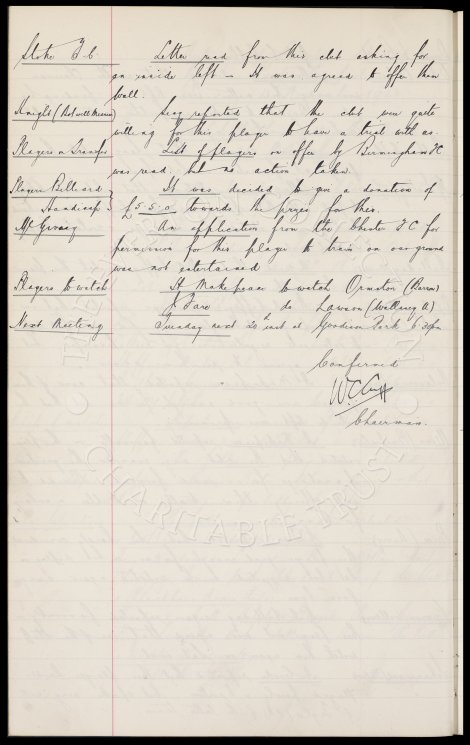 Stoke F.C. Letter read from this club asking for
an inside left - It was agreed to offer them
Wall.
Knight (Rotwill Mission) Secy reported that the club were quite
willing for this player to have a trial with us.
Players on Transfer List of players on offer by Birmingham FC
was read but no action taken.
Players Billiard It was decided to give a donation of
Handicap £5-5-0 towards the prizes for this.
McGreavy An application from the Chester F.C for
permission for this player to train on our ground
was not entertained
Players to watch A Makepeace to watch Ormston (Barrow)
J Fare do Lawson (Wallasey A)
Next Meeting Tuesday next 20th inst at Goodison Park 6.30pm
Confirmed
W.C. Cuff
Chairman.
CHARITABLE TRUST